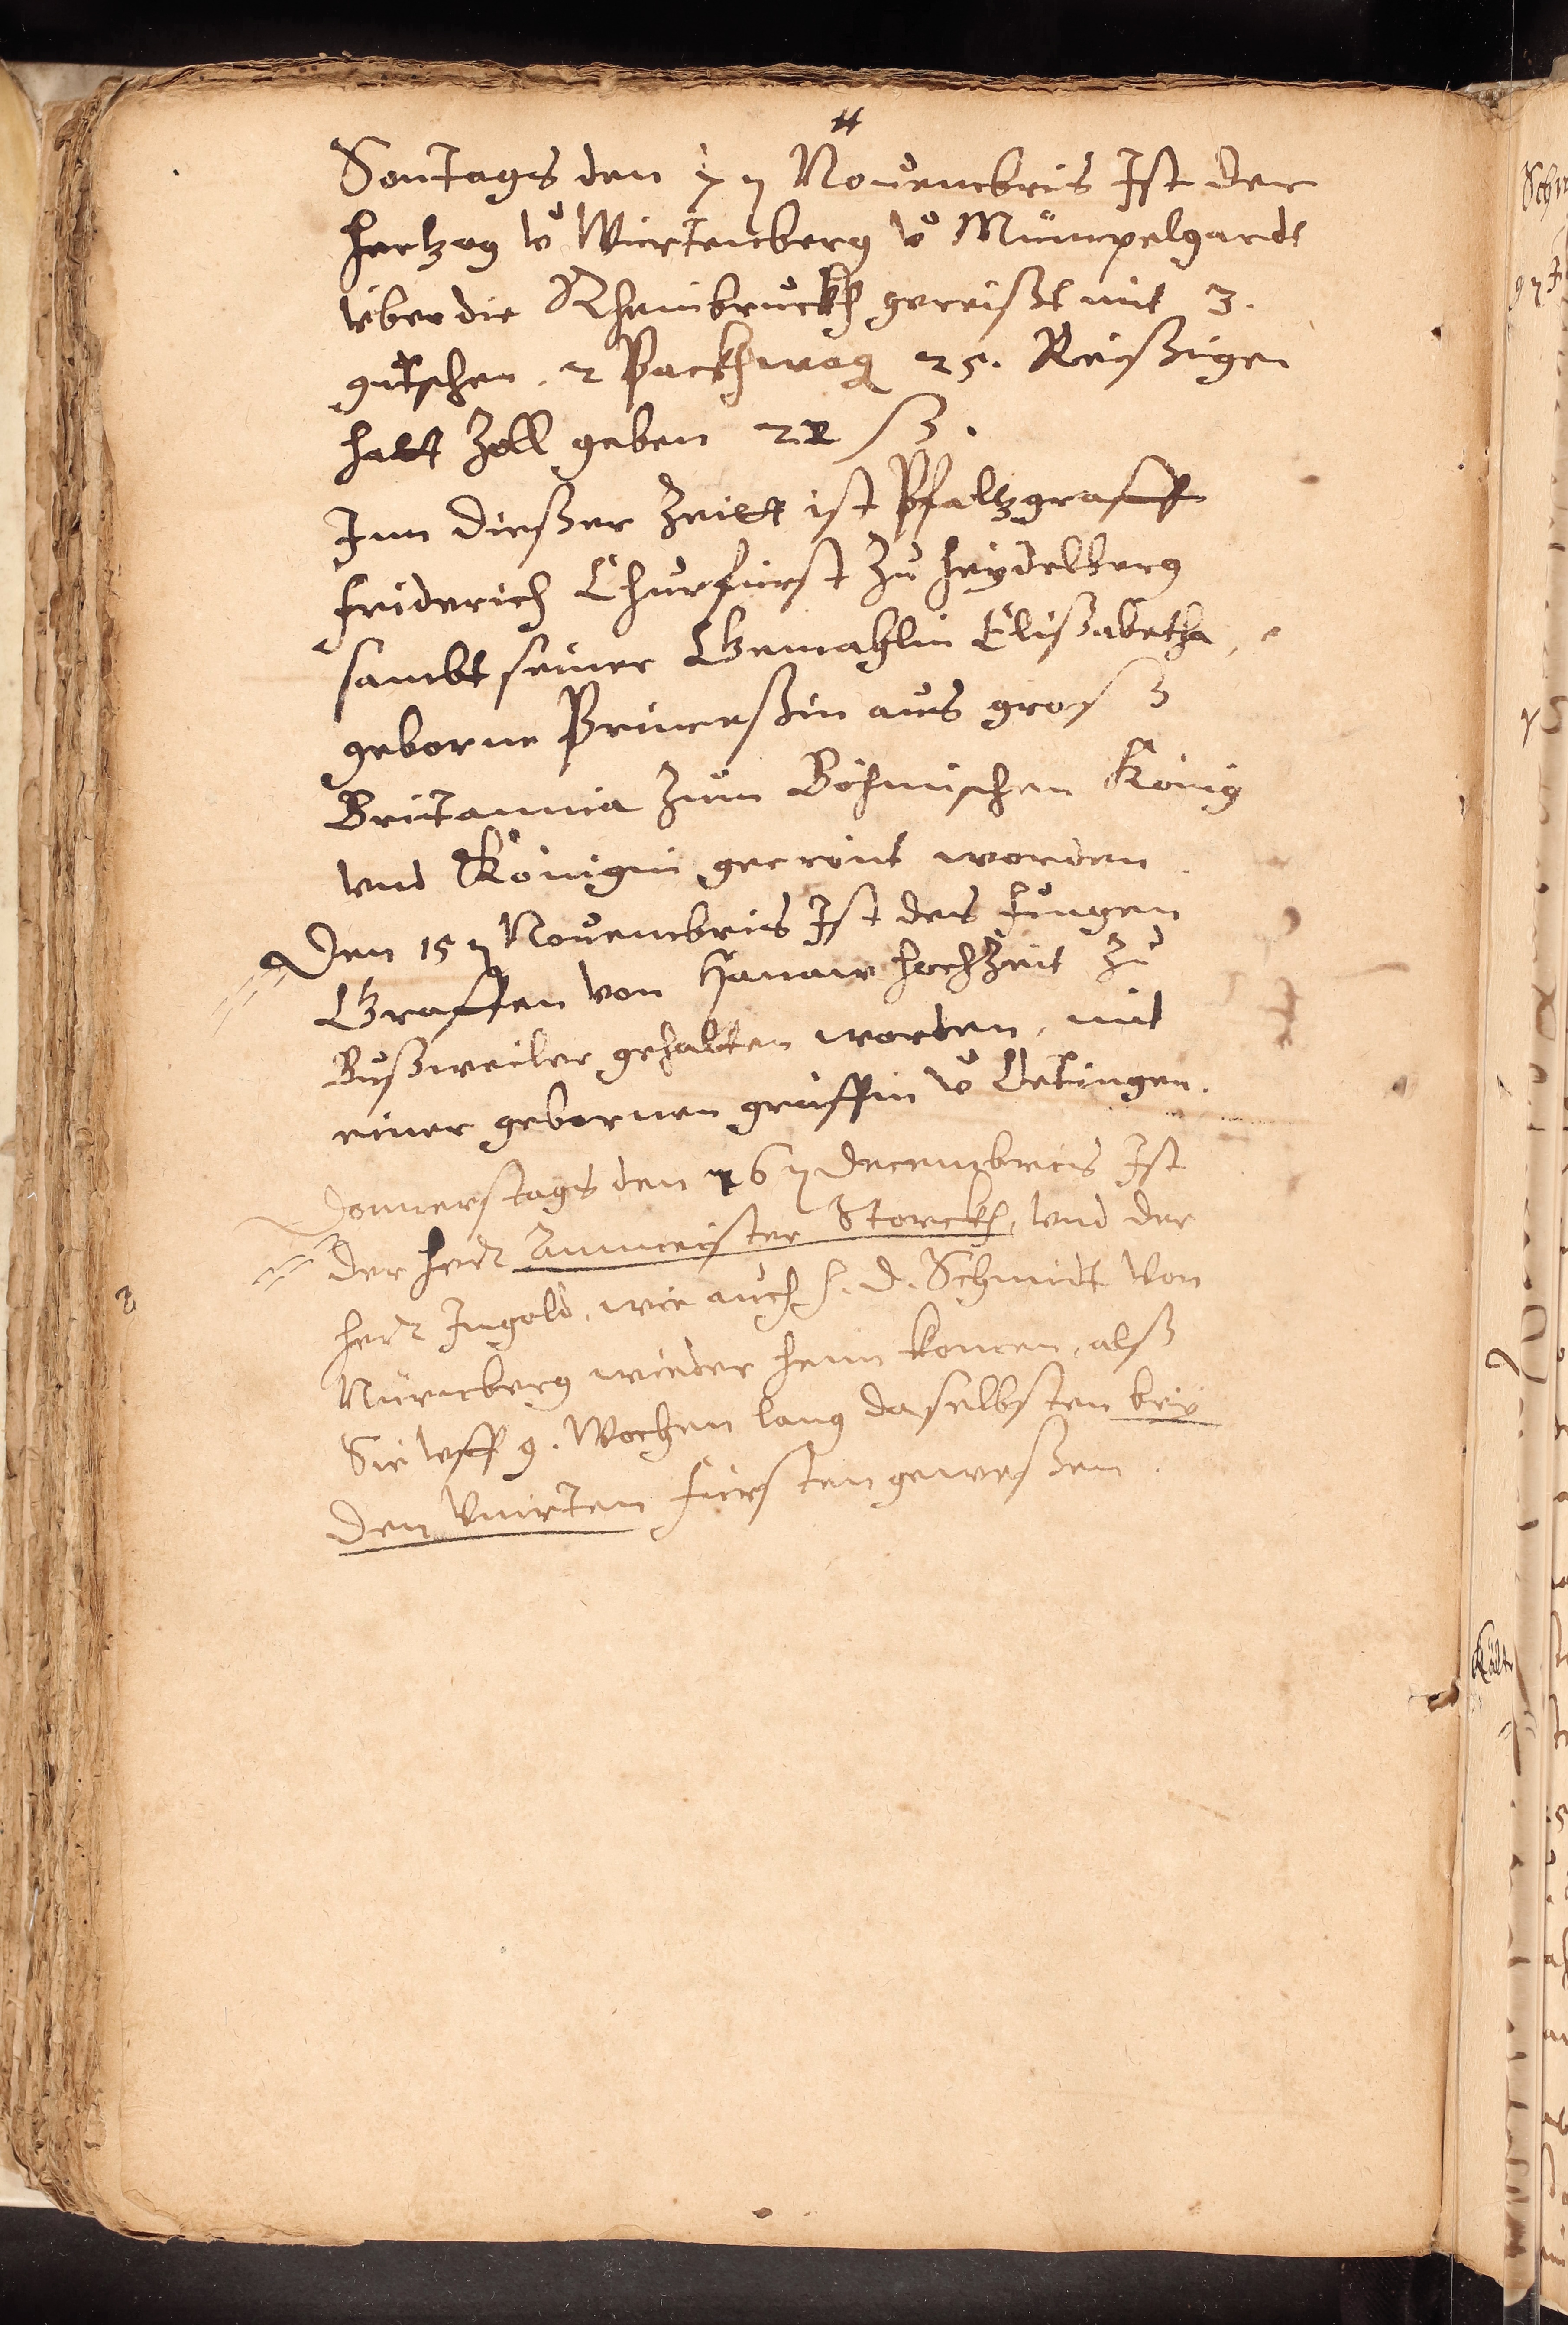 Sontags den 7 9 Nouembris Ist der
Hertzog vō Wirtenberg vō Mümpelgardt
vber die Rheinbruckh gereißt mit 3.
gutschen. 2 Packhwag 25. Reißigen
hatt Zoll geben 22 ß.
Inn dießer Zeitt ist Pfaltzgraff
friderich Churfürst zu Heydelberg
sambt seiner Gemahlin Elißabetha,
geborne Princeßin aus groß
Britannia zum Böhmischen König
vnd Königin gecrönt worden
Den 15 9 Nouembris Ist des Jungen
Graffen von Hanaw hochzeit zu
Bußweiler gehalten worden, mit
einer gebornen gräffin vō Oetingen.
Donnerstags den 16 9 Decembris Ist
der herr Ammeister Storckh, vnd der
herr Ingold, wie auch h. D. Schmidt von
Nürmberg wieder heim komen, alß
Sie vff 9. Wochen lang daselbsten bey
den vnirten fürsten geweßen.